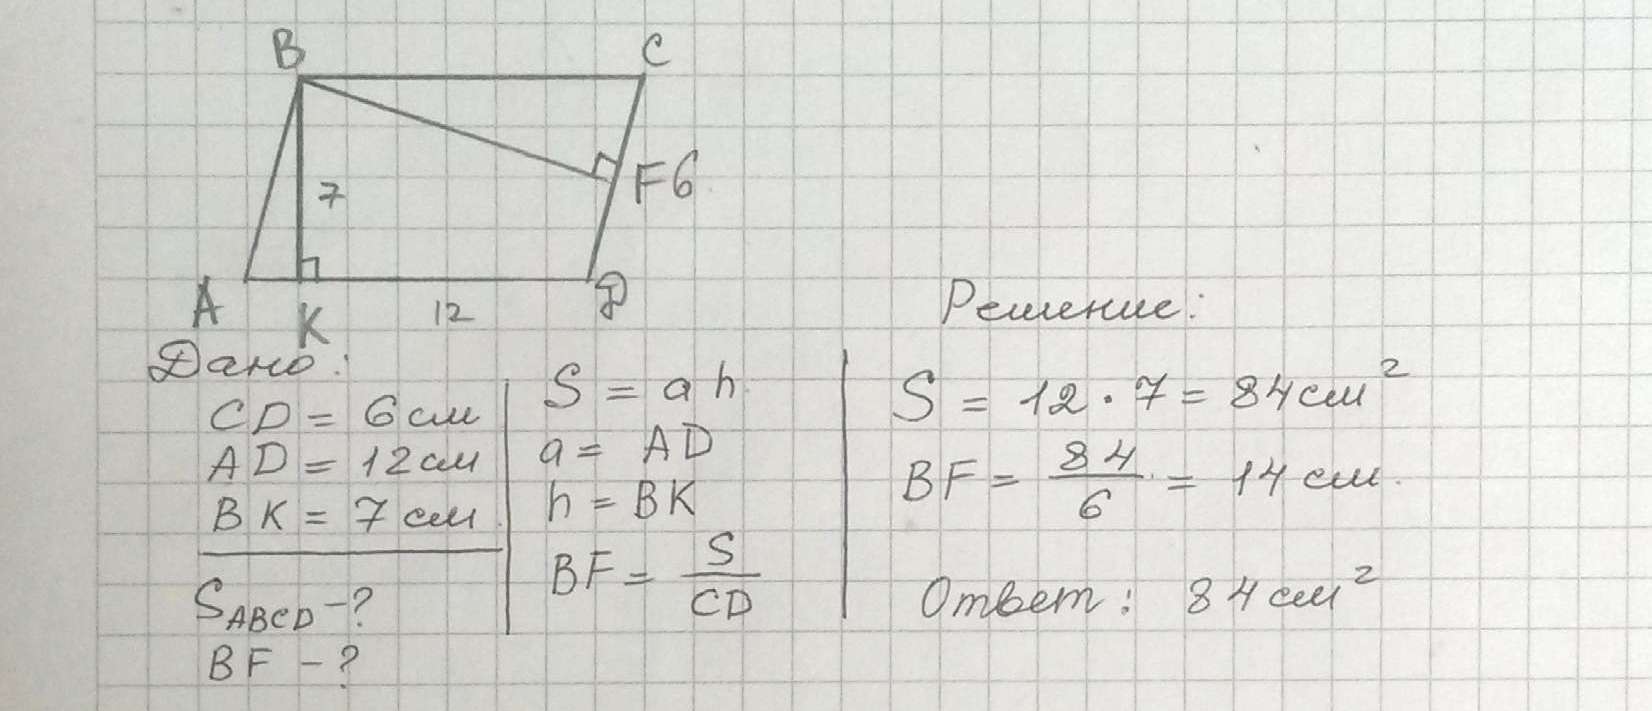 B C
7
F 6
A K 12 D
Дано:
CD = 6 см
AD = 12 см
BK = 7 см
S_ABCD - ?
BF - ?
S = a h
a = AD
h = BK
BF = S/CD
Решение:
S = 12 · 7 = 84 см²
BF = 84/6 = 14 см.
Ответ: 84 см²